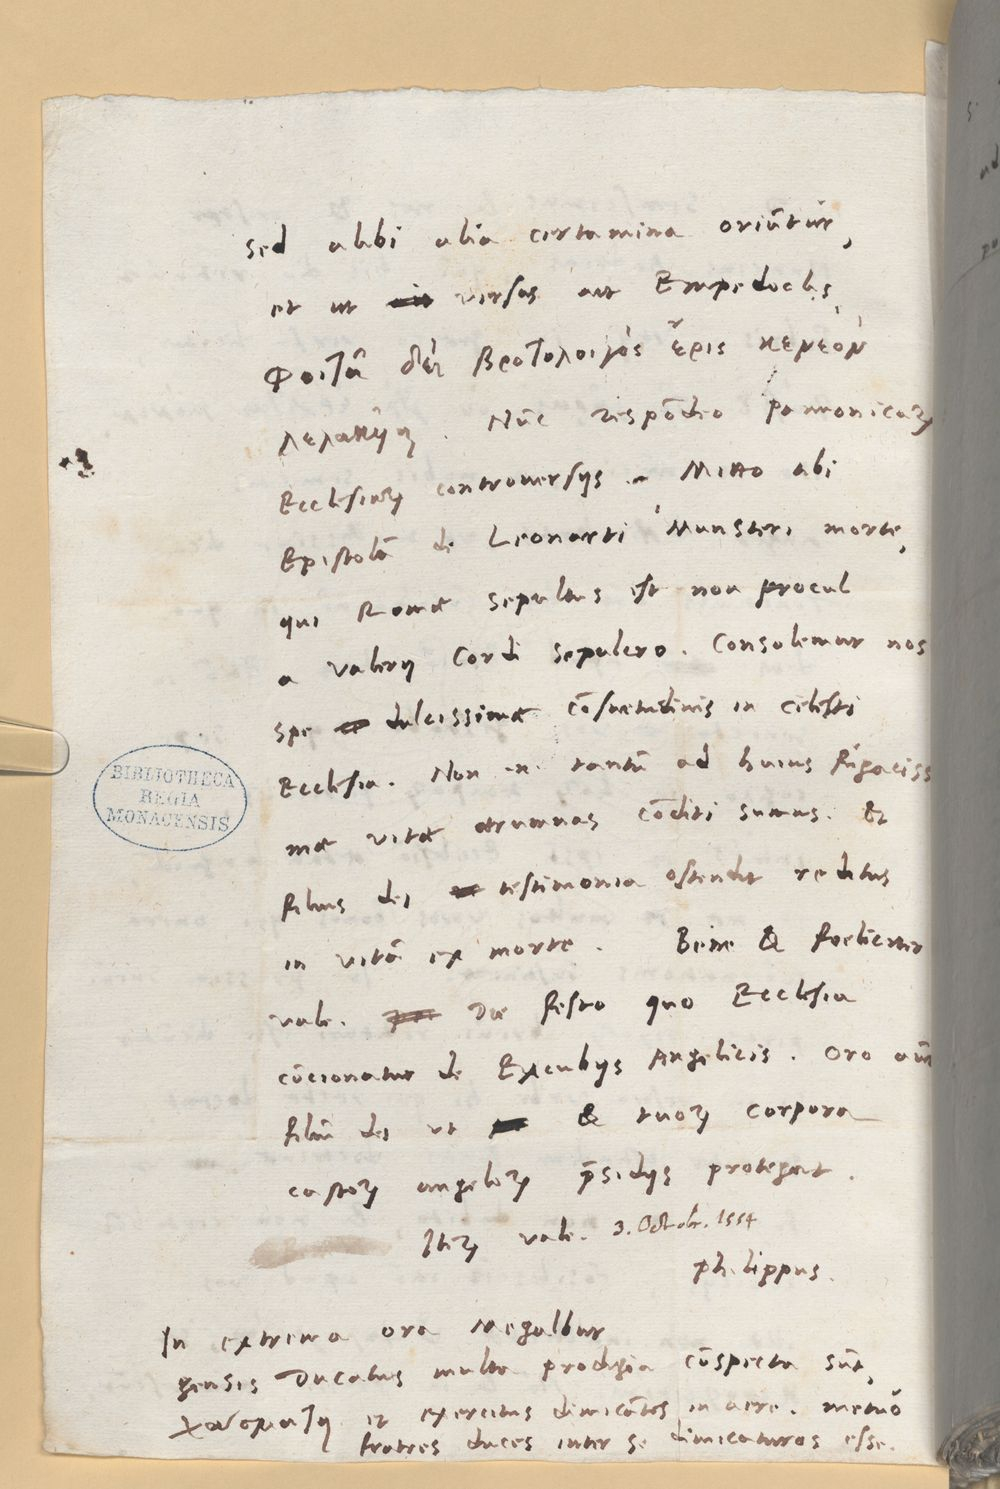 sed alibi alia certamina oriūtur,
et ut versus ait Empedoclis,
Φοιτᾷ δέι βροτολοιγὸς ἔρις κενεὸν
λελακυῖα. Nūc respōdeo pannonicaꝝ
Ecclesiaꝝ controuersijs. Mitto tibi
Epistolā de Leonarti Munsteri morte,
qui Romæ sepultus est non procul
a Valerij Cordi sepulcro. Consolemur nos
spe dulcissimæ cōsuetudinis in celesti
Ecclesia. Non .n. tantū ad huius fugaciss
mæ vitæ ærumnas cōditi sumus. &
filius dei testimonia ostendit reditus
in vitā ex morte. Bene & foeliciter
vale. Die festo quo Ecclesia
cōcionatur de Excubijs Angelicis. Oro aūt
filiū dei vt & tuoꝝ corpora
castoꝝ angeloꝝ p̄sidijs protegat.
Iteꝝ vale. 3. Octob. 1554
philippus.
In extrema ora Megalbur
gensis Ducatus multa prodigia cōspecta sūt,
χάσματα et exercitus dimicātes in aere. metuo
fratres duces inter se dimicaturos esse.
BIBLIOTHECA
REGIA
MONACENSIS